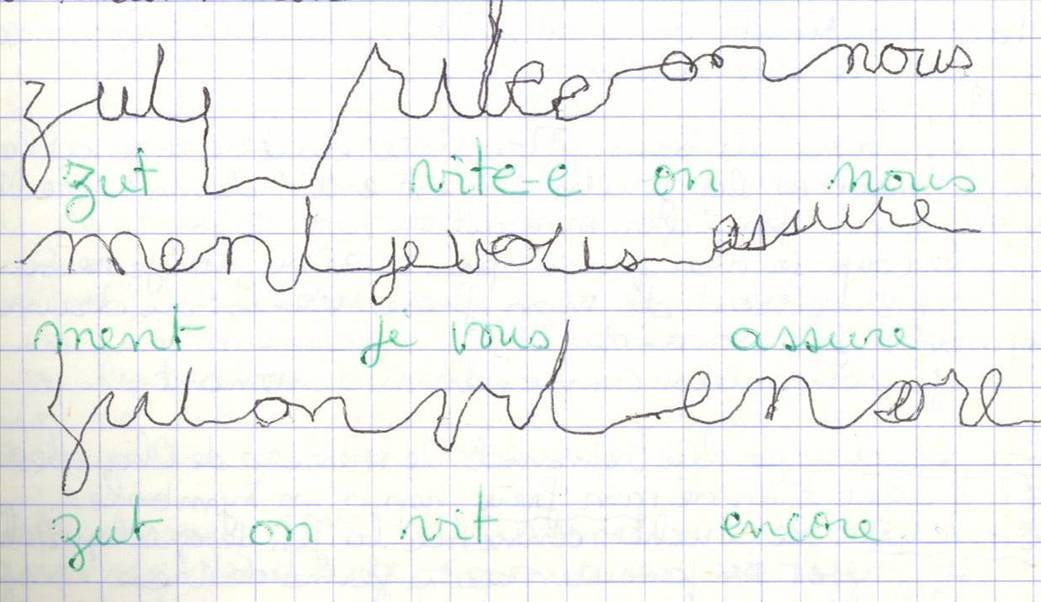 zut vitee on nous
zut vite-e on nous
ment je vous assure
ment je vous assure
zut on vit encore
zut on vit encore